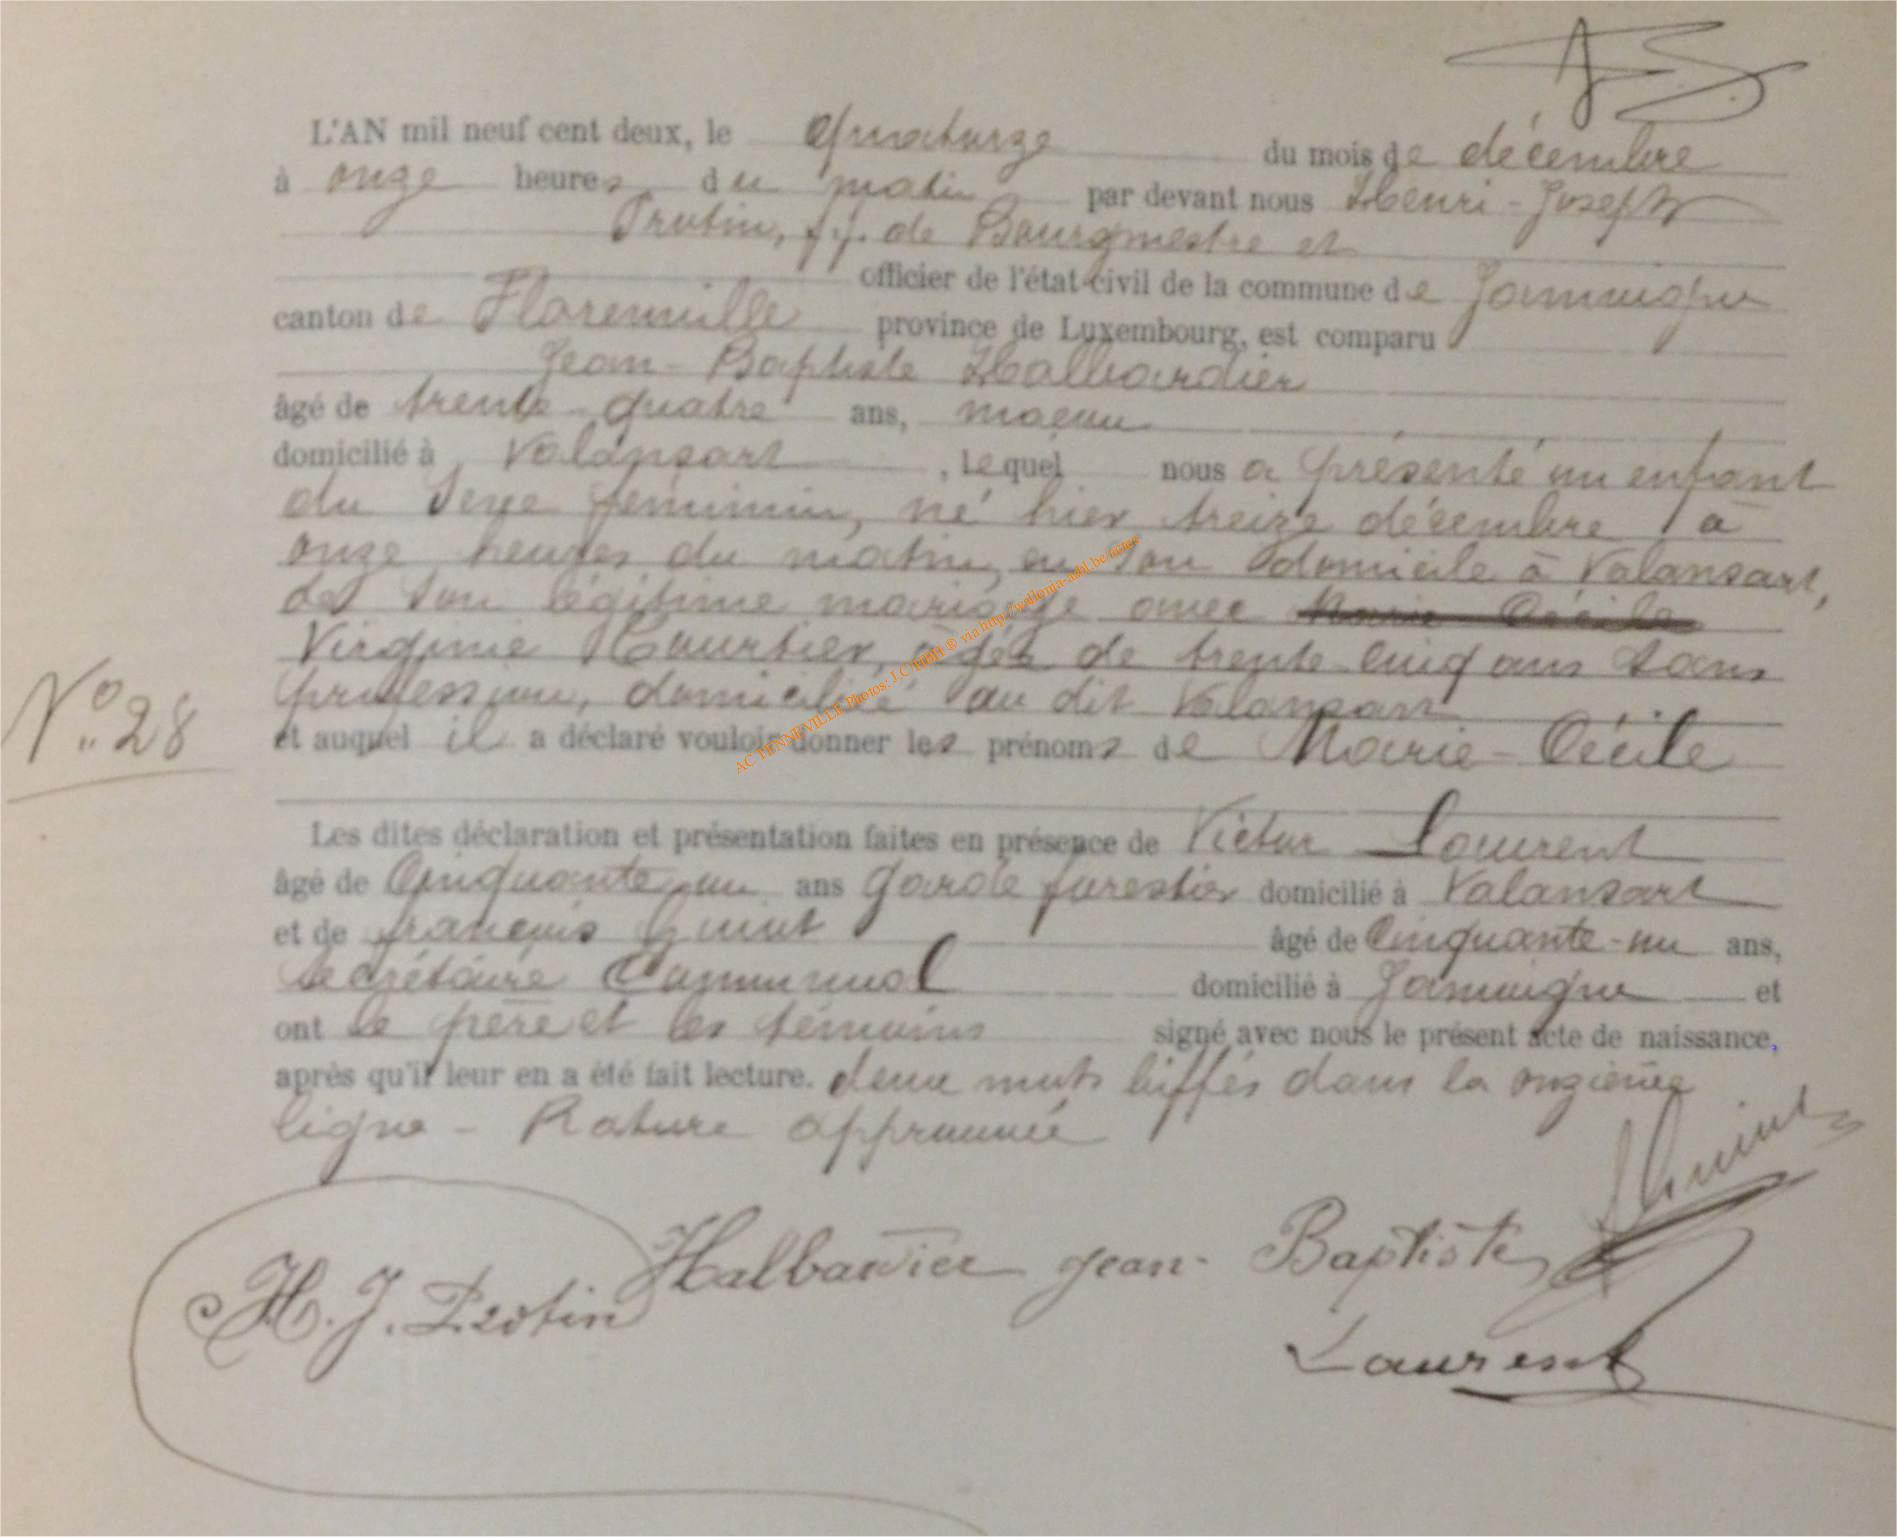 L'AN mil neuf cent deux, le quatorze du mois de décembre
à onze heures du matin par devant nous Henri-Joseph
Protin, f.f. de Bourgmestre et
officier de l'état-civil de la commune de Jamoigne
canton de Florenville province de Luxembourg, est comparu
Jean-Baptiste Halbardier
âgé de trente-quatre ans, maçon
domicilié à Valansart, lequel nous a présenté un enfant
du sexe féminin, né hier treize décembre à
onze heures du matin, en son domicile à Valansart,
de son légitime mariage avec Marie Cécile
Virginie Courtier, âgée de trente-cinq ans sans
profession, domiciliée au dit Valansart
N° 28
et auquel il a déclaré vouloir donner les prénoms de Marie-Cécile
Les dites déclaration et présentation faites en présence de Victor Laurent
âgé de Cinquante-un ans garde forestier domicilié à Valansart
et de françois Guiot âgé de Cinquante-un ans,
Secrétaire Communal domicilié à Jamoigne et
ont le père et les témoins signé avec nous le présent acte de naissance,
après qu'il leur en a été fait lecture. deux mots biffés dans la onzième
ligne - Rature approuvée
H. J. Protin Halbardier Jean-Baptiste
Laurent
AC TENNEVILLE Photos: J.C HBH © via http://wallonia-asbl.be